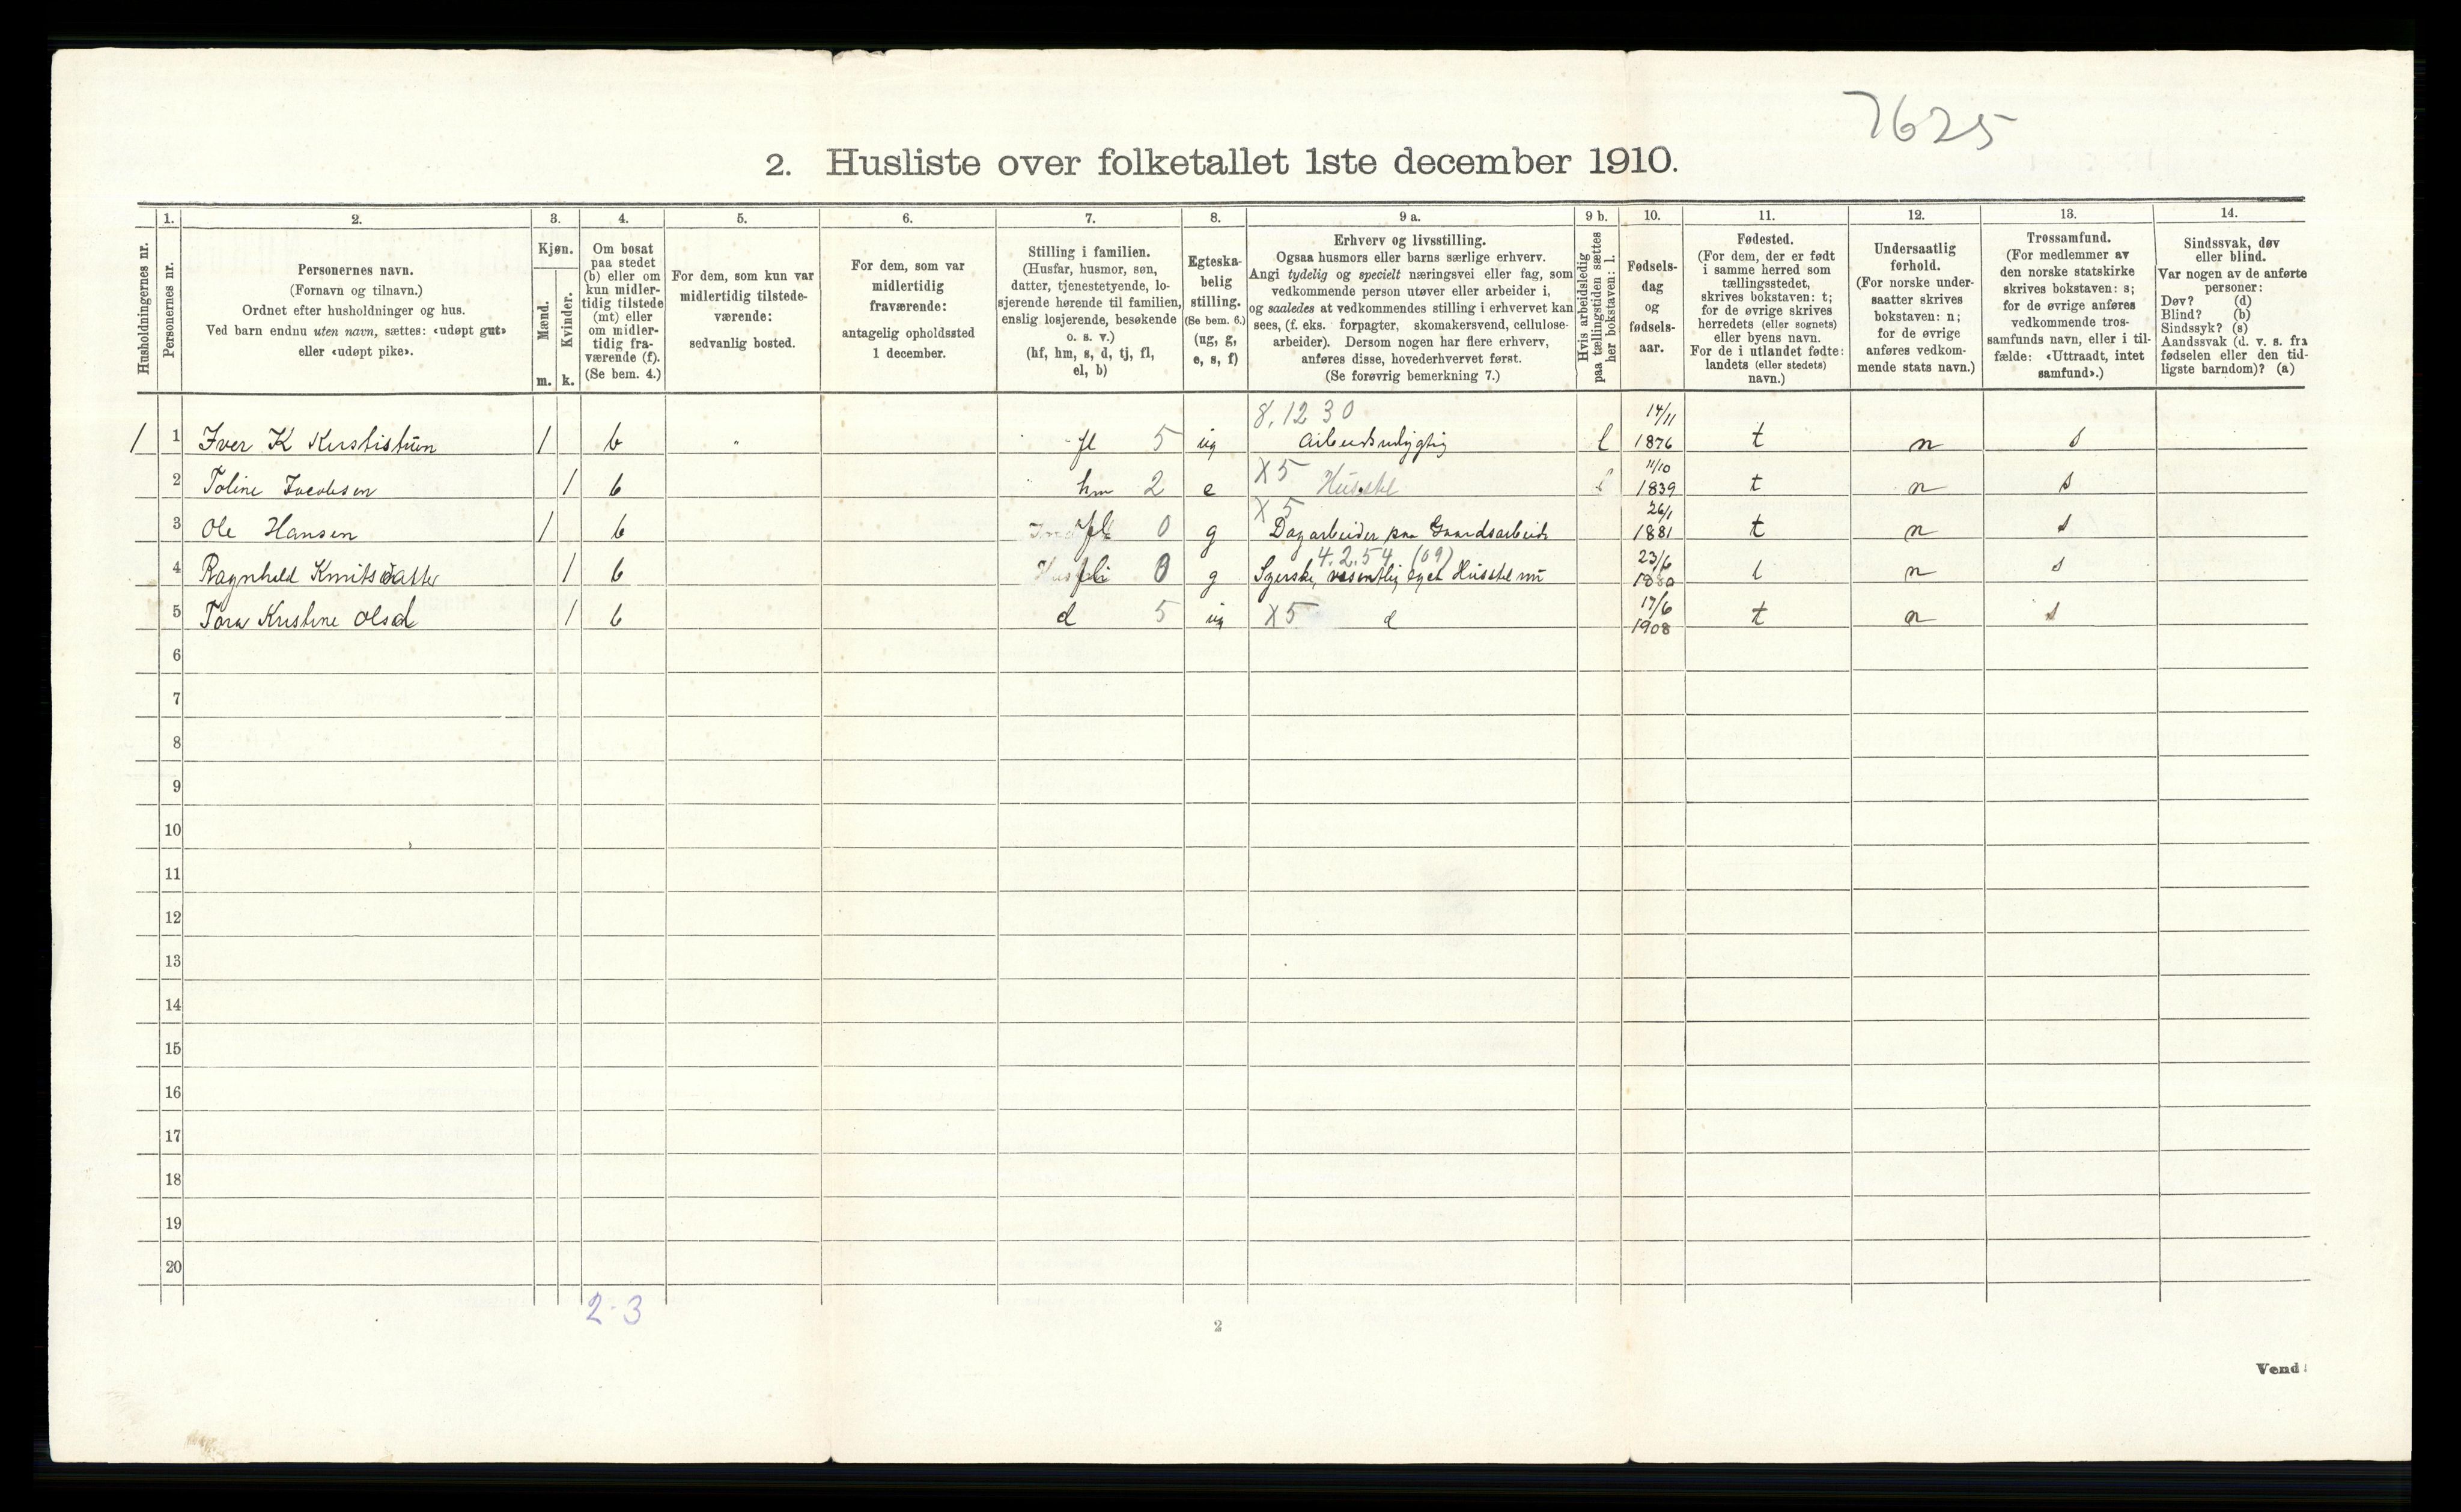 7625
2. Husliste over folketallet 1ste december 1910.
1. 2. 3. 4. 5. 6. 7. 8. 9 a. 9 b. 10. 11. 12. 13. 14.
Husholdningernes nr.
Personernes nr.
Personernes navn.
(Fornavn og tilnavn.)
Ordnet efter husholdninger og hus.
Ved barn endnu uten navn, sættes: «udøpt gut»
eller «udøpt pike».
Kjøn.
Mænd.
Kvinder.
m. k.
Om bosat
paa stedet
(b) eller om
kun midler-
tidig tilstede
(mt) eller
om midler-
tidig fra-
værende (f).
(Se bem. 4.)
For dem, som kun var
midlertidig tilstede-
værende:
sedvanlig bosted.
For dem, som var
midlertidig
fraværende:
antagelig opholdssted
1 december.
Stilling i familien.
(Husfar, husmor, søn,
datter, tjenestetyende, lo-
sjerende hørende til familien,
enslig losjerende, besøkende
o. s. v.)
(hf, hm, s, d, tj, fl,
el, b)
Egteska-
belig
stilling.
(Se bem. 6.)
(ug, g,
e, s, f)
Erhverv og livsstilling.
Ogsaa husmors eller barns særlige erhverv.
Angi tydelig og specielt næringsvei eller fag, som
vedkommende person utøver eller arbeider i,
og saaledes at vedkommendes stilling i erhvervet kan
sees, (f. eks. forpagter, skomakersvend, cellulose-
arbeider). Dersom nogen har flere erhverv,
anføres disse, hovederhvervet først.
(Se forøvrig bemerkning 7.)
Hvis arbeidsledig
paa tællingstiden sættes
her bokstaven: l.
Fødsels-
dag
og
fødsels-
aar.
Fødested.
(For dem, der er født
i samme herred som
tællingsstedet,
skrives bokstaven: t;
for de øvrige skrives
herredets (eller sognets)
eller byens navn.
For de i utlandet fødte:
landets (eller stedets)
navn.)
Undersaatlig
forhold.
(For norske under-
saatter skrives
bokstaven: n;
for de øvrige
anføres vedkom-
mende stats navn.)
Trossamfund.
(For medlemmer av
den norske statskirke
skrives bokstaven: s;
for de øvrige anføres
vedkommende tros-
samfunds navn, eller i til-
fælde: «Uttraadt, intet
samfund».)
Sindssvak, døv
eller blind.
Var nogen av de anførte
personer:
Døv? (d)
Blind? (b)
Sindssyk? (s)
Aandssvak (d. v. s. fra
fødselen eller den tid-
ligste barndom)? (a)
8.1230 14/11
1 1 Iver K Kirstistuen 1 b fl 5 ug Arbeidsudygtig l 1876 t n s
X5 11/10
2 Toline Jacobsen 1 b hm 2 e Husstel l 1839 t n s
X5 26/1
3 Ole Hansen 1 b fl 0 g Dagarbeider paa Gaardsarbeide 1881 t n s
4.2.54 (09) 23/6
4 Ragnhild Knutsdatter 1 b fl 0 g Syerske, væsentlig eget Husstel nu 1880 t n s
17/6
5 Tora Kristine Olsd 1 b d 5 ug X5 d 1908 t n s
6
7
8
9
10
11
12
13
14
15
16
17
18
19
20
2-3
2
Vend!